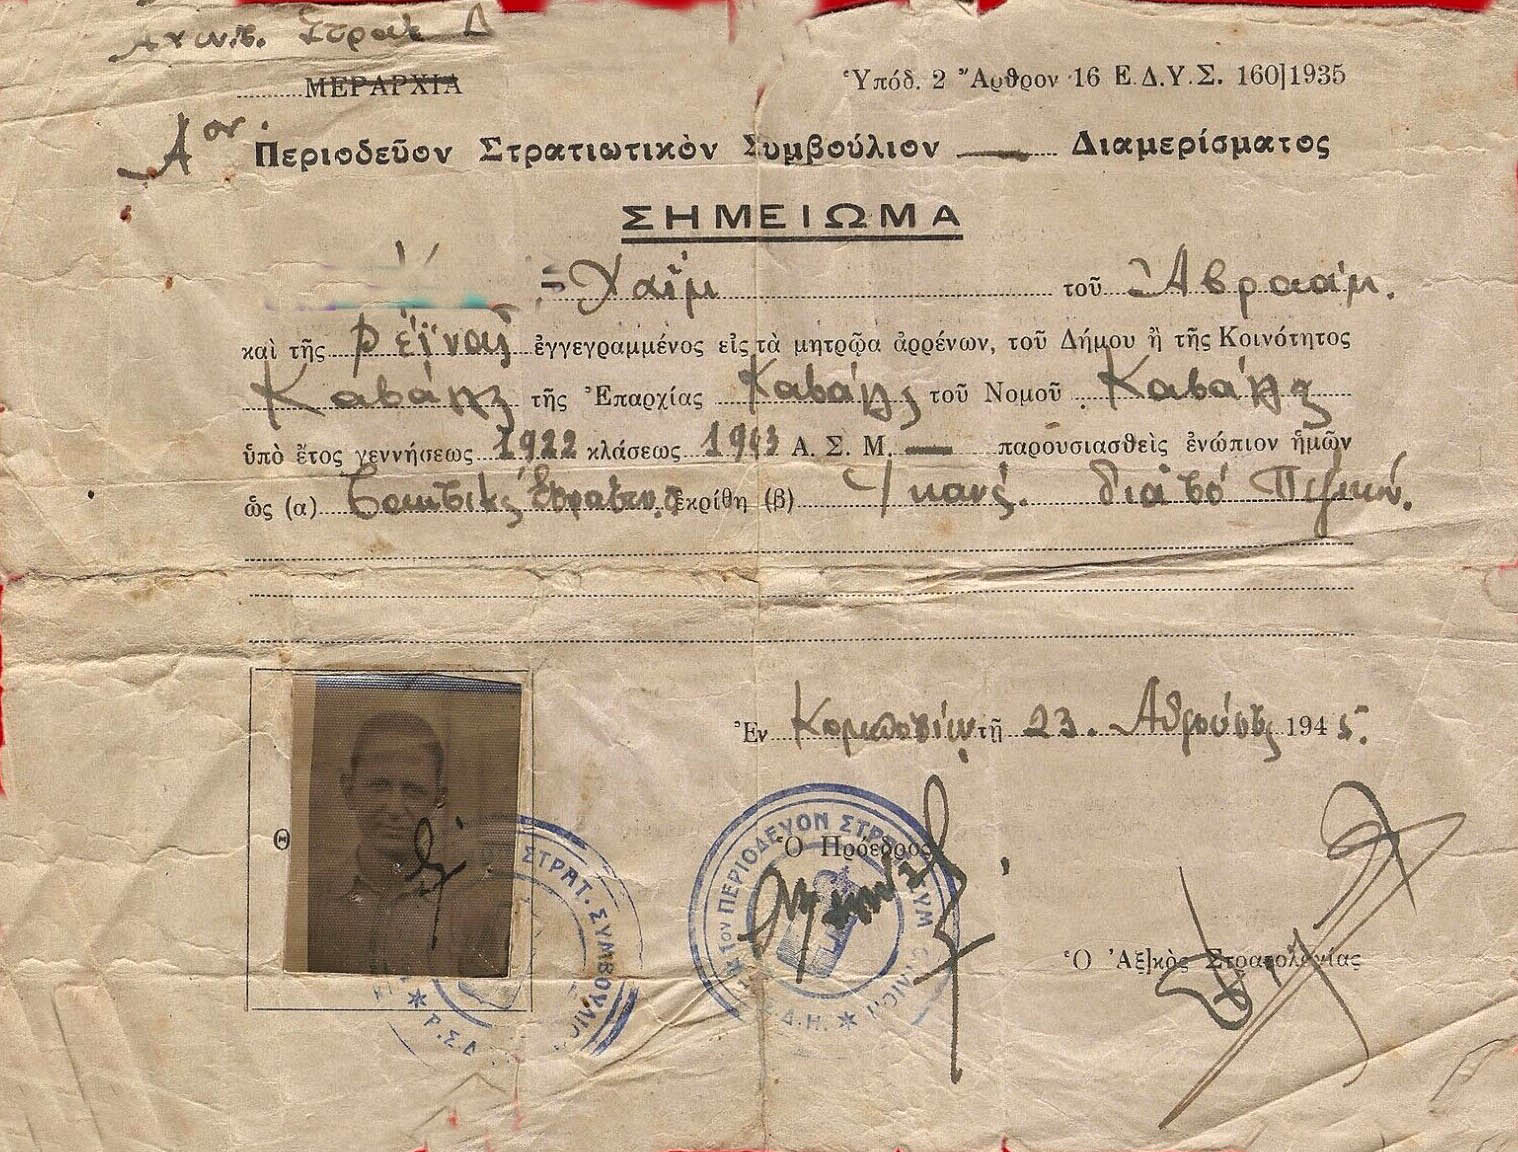 Ἀνωτ. Στρατ Δ
ΜΕΡΑΡΧΙΑ
Ὑπόδ. 2 Ἄρθρον 16 Ε.Δ.Υ.Σ. 160]1935
Αον Περιοδεῦον Στρατιωτικὸν Συμβούλιον — Διαμερίσματος
ΣΗΜΕΙΩΜΑ
Χαΐμ τοῦ Ἀβραάμ.
καὶ τῆς Ρέϊνας ἐγγεγραμμένος εἰς τὰ μητρῷα ἀρρένων, τοῦ Δήμου ἢ τῆς Κοινότητος
Καβάλας τῆς Ἐπαρχίας Καβάλας τοῦ Νομοῦ Καβάλας
ὑπὸ ἔτος γεννήσεως 1922 κλάσεως 1943 Α. Σ. Μ. — παρουσιασθεὶς ἐνώπιον ἡμῶν
ὡς (α) ἐκρίθη (β) Ἱκανός. διὰ τὸ Πεζικόν.
Ἐν Κομοτινῇ τῇ 23. Αὐγούστου 1945.
Θ
Ὁ Πρόεδρος
Ὁ Ἀξ]κὸς Στρατολογίας
ΣΤΡΑΤ. ΣΥΜΒΟΥΛΙΟ
Ρ.Σ.Δ
Τον ΠΕΡΙΟΔΕΥΟΝ ΣΤΡΑΤ ΣΥΜ
Σ.Δ.Η.